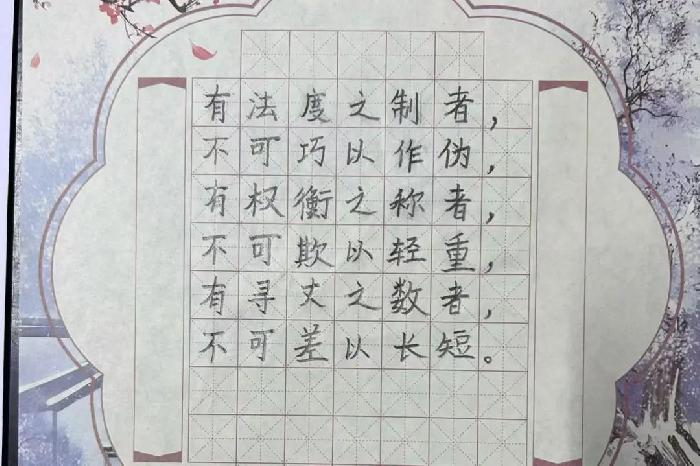 有法度之制者，
不可巧以作伪，
有权衡之称者，
不可欺以轻重，
有寻丈之数者，
不可差以长短。